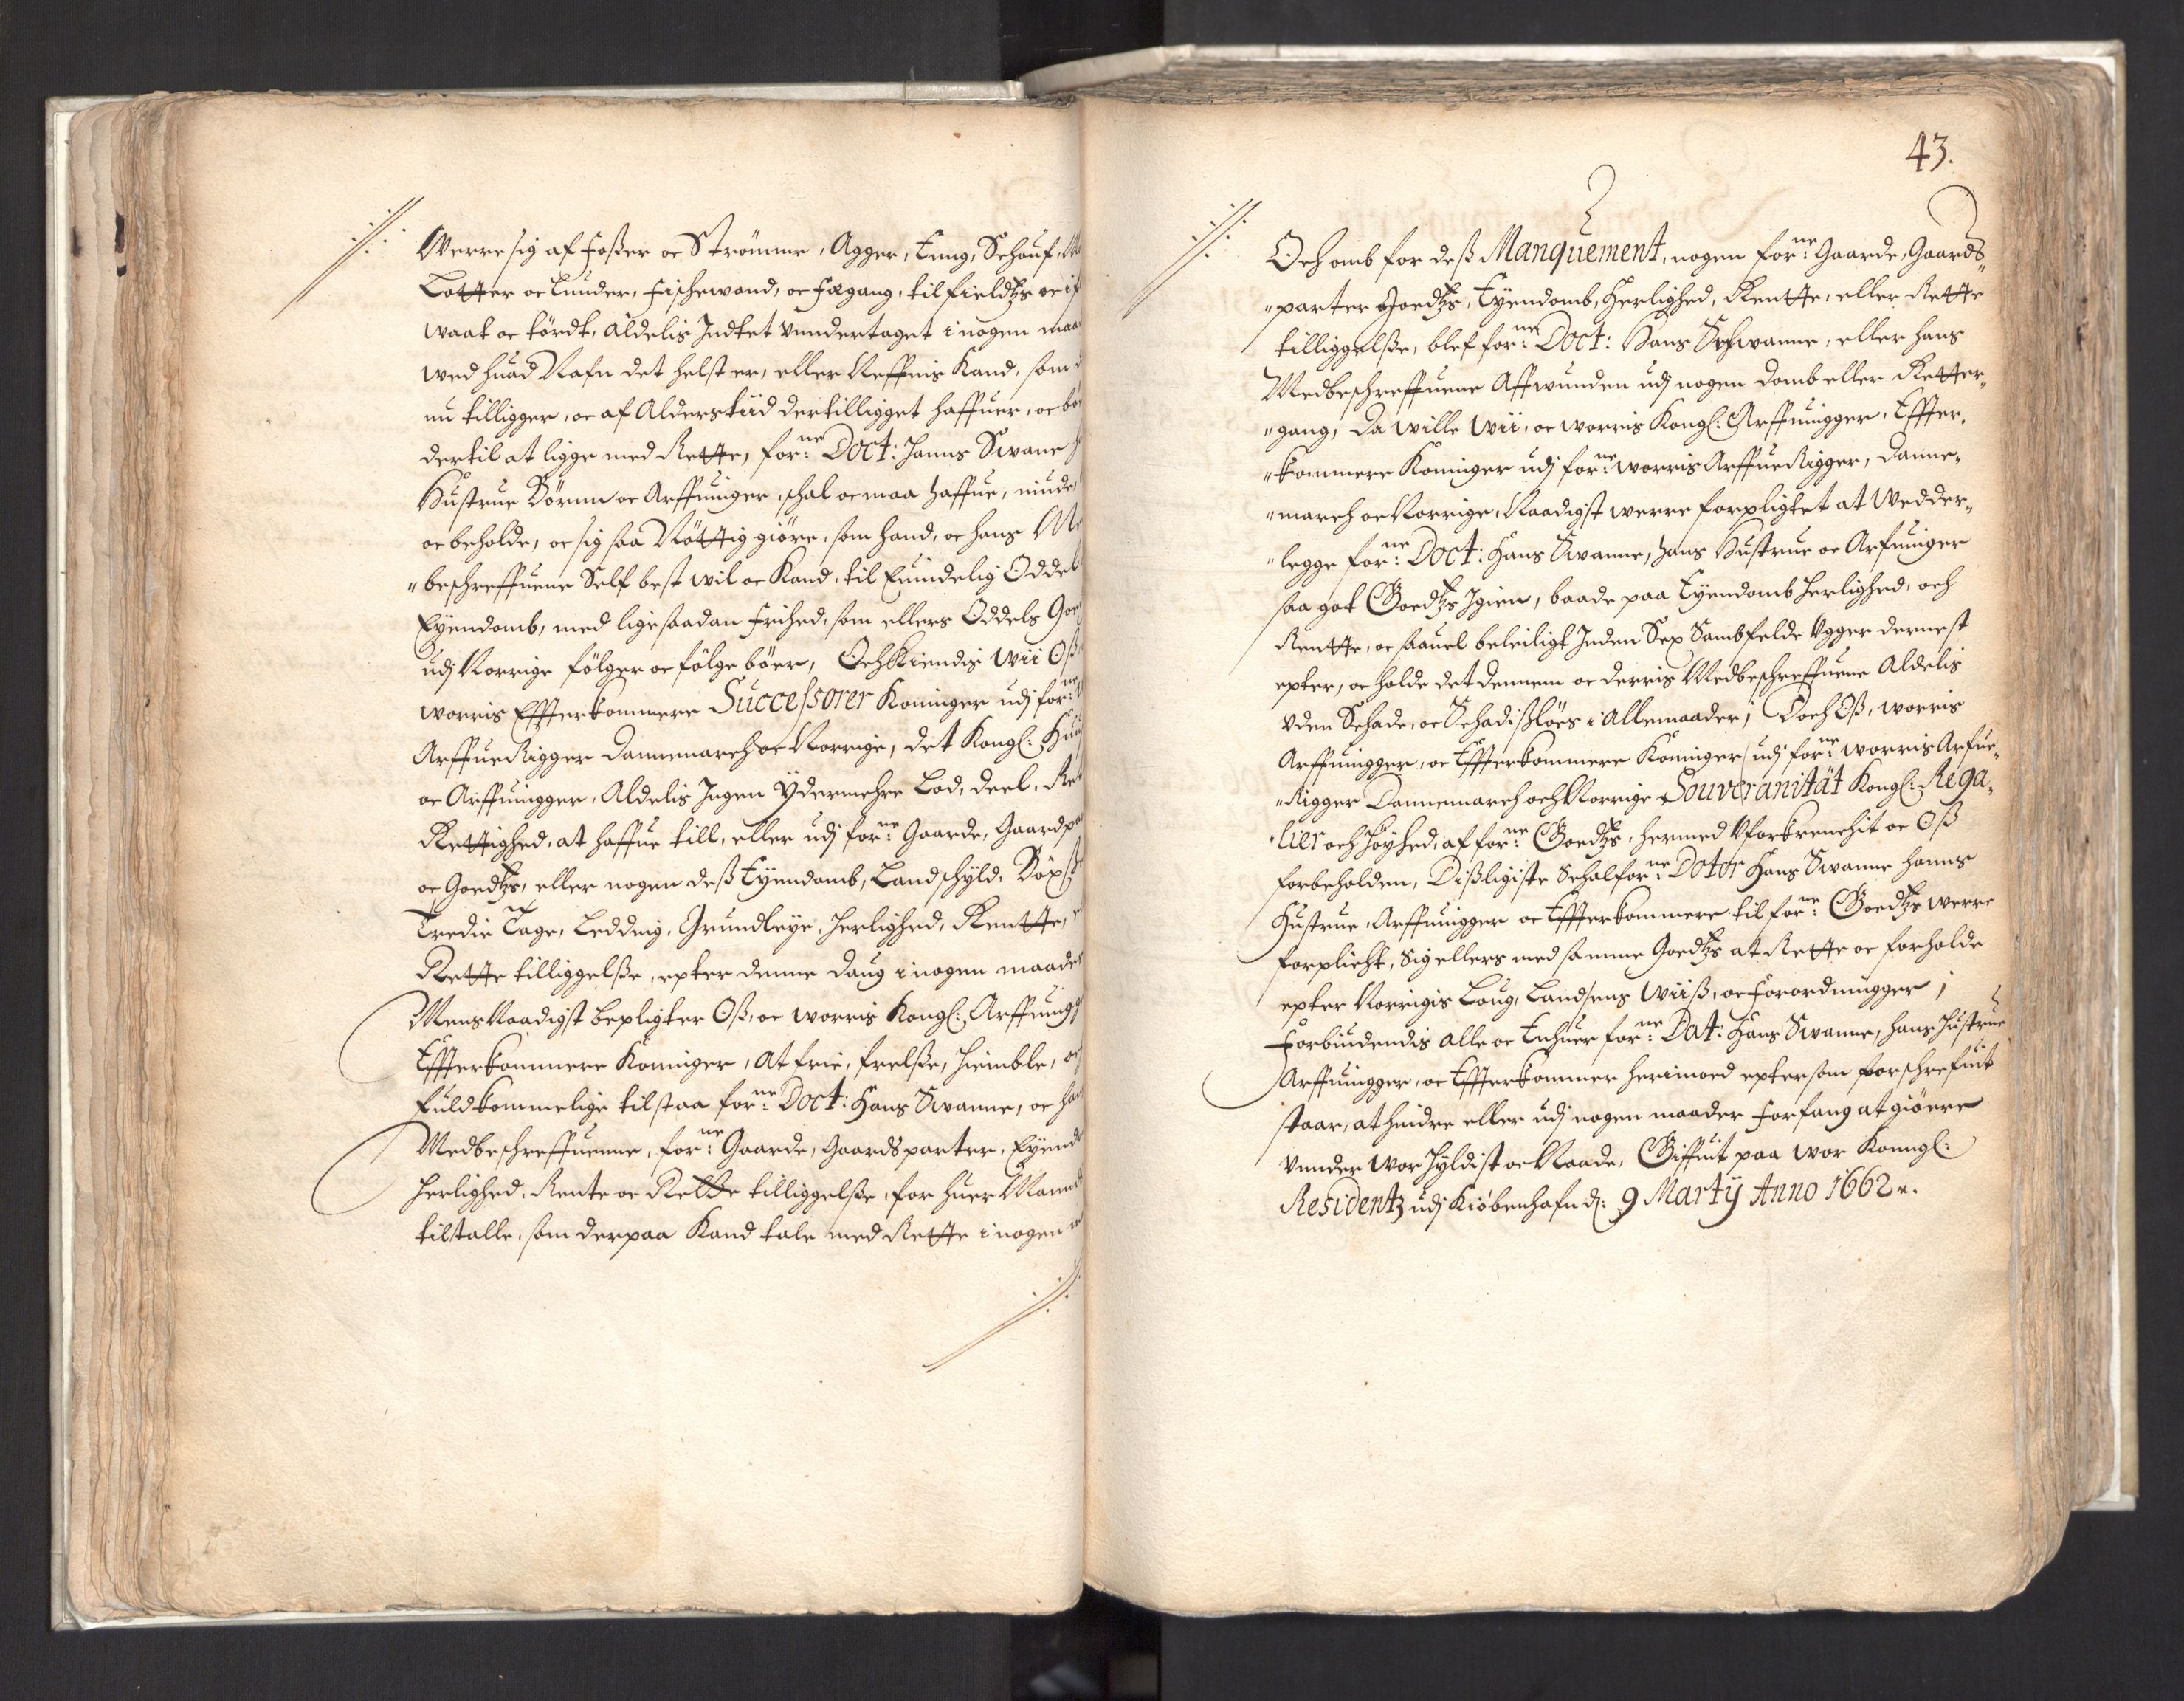 Werre sig af Foßer oc Strömme, Agger, Eeng, Schouf,
Lotter oc Lunder, Fischevand, oc Fægang, til Fieldtzs oc if
waat oc tördt, aldelis Indtet unndertaget i nogen maa
wed huad Nafn det helst er, eller Neffnis Kand, som
nu tilligger, oc af Alders tiid dertilligget haffuer, oc bör
dertil at ligge med Rette, forne: Doct: Hanns Svane
Hustrue Börnn oc Arffuinger, schal oc maa haffue, niude,
oc beholde, oc sig saa Nöttig giöre, som hand, oc hans Me
"beschreffuene Self best wil oc Kand, til Euindelig Oddel
Eyendomb, med lige saadan Frihed, som ellers Oddels Goe
udj Norrige fölger oc fölge böer, Och Kiendis wii Oß
worris Effterkommere Successorer Koninger udj forne:
Arffue Rigger Dannemarch oc Norrige, det Kongl: Huu
oc Arffuingger, Aldelis Ingen Ydermehre Lod, deel, Ret
Rettighed, at haffue till, eller udj forne: Gaarde, Gaardpa
oc Goedtzs, eller nogen deß Eyendomb, Landschyld, Böxs
Tredie Tage, Ledding, Grundleye, Herlighed, Rentte,
Rette tilliggelße, epter denne daug i nogen maade
Mens Naadigst bepligter Oß, oc worris Kongl: Arffuingg
Effterkommere Koninger, At frie, frelße, hiemble, oc
fuldkommelige tilstaa forne: Doct: Hans Svanne, oc han
Medbeschreffuenne, forne: Gaarde, Gaards parter, Eyend
Herlighed, Rente oc Rette tilliggelße, for huer Mannd
tiltalle, som derpaa Kand tale med Rette i nogen
43.
Och omb for deß Manquement, nogen forne: Gaarde, Gaards
"parter Goedtzs, Eyendomb, Herlighed, Rentte, eller Rette
tilliggelße, blef forne: Doct: Hans Schwanne, eller hans
Medbeschreffuene Affwunden udj nogen domb eller Retter,,
"gang, Da wille wii, oc worris Kongl: Arffuingger, Effter,
"kommere Koninger udj forne: worris Arffue Rigger, Danne,
"march oc Norrige, Naadigst werre forpligtet at Wedder,,
"legge forne: Doct: Hans Svanne, hans Hustrue oc Arfuinger
saa got Goedtzs Igien, baade paa Eyendomb Herlighed, och
Rentte, oc saauel beleiligt Inden Sex Sambfelde Ugger dernest
epter, oc holde det dennem oc derris Medbeschreffuene Aldelis
uden Schade, oc Schadißlöes i Allemaader; Doch Oß, worris
Arffuingger, oc Effterkommere Koninger udj forne: worris Arfue,,
"Rigger Dannemarch och Norrige Souveranität Kongl: Rega,
"lier och Höyhed, af forne: Goedtzs, hermed Uforkrenchit oc Oß
forbeholden, Dißligiste Schal forne: Dotor Hans Svanne hanns
Hustrue, Arffuingger oc Effterkommere til forne: Goedtzs werre
forplicht, Sig ellers med samme Goedtzs at Rette oc forholde
epter Norrigis Loug, Landsens Wiiß, oc Forordningger;
Forbiudendis alle oc Enhuer forne: Dat: Hans Svanne, hans Hustrue
Arffuingger, oc Effterkommer herimoed eptersom forschrefuit
staar, at hindre eller udj nogen maader Forfang at giöere
unnder wor Hyldist oc Naade, Giffuit paa wor Konngl:
Residentz udj Kiöbenhafn d: 9 Martÿ Anno 1662.